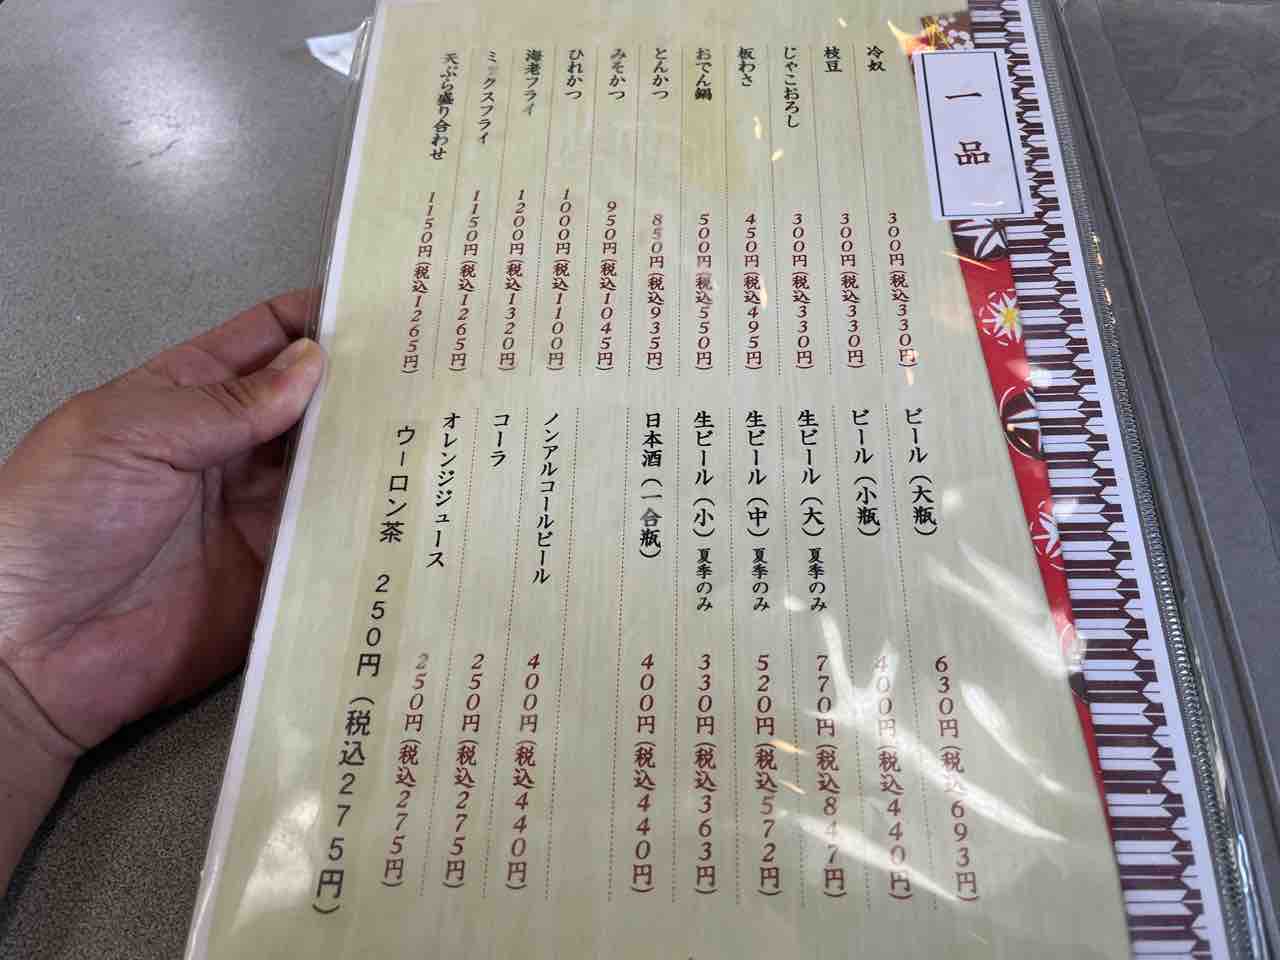 一品
冷奴 300円(税込330円)
枝豆 300円(税込330円)
じゃこおろし 300円(税込330円)
板わさ 450円(税込495円)
おでん鍋 500円(税込550円)
とんかつ 850円(税込935円)
みそかつ 950円(税込1045円)
ひれかつ 1000円(税込1100円)
海老フライ 1200円(税込1320円)
ミックスフライ 1150円(税込1265円)
天ぷら盛り合わせ 1150円(税込1265円)
ビール(大瓶) 630円(税込693円)
ビール(小瓶) 400円(税込440円)
生ビール(大)夏季のみ 770円(税込847円)
生ビール(中)夏季のみ 520円(税込572円)
生ビール(小)夏季のみ 330円(税込363円)
日本酒(一合瓶) 400円(税込440円)
ノンアルコールビール 400円(税込440円)
コーラ 250円(税込275円)
オレンジジュース 250円(税込275円)
ウーロン茶 250円(税込275円)